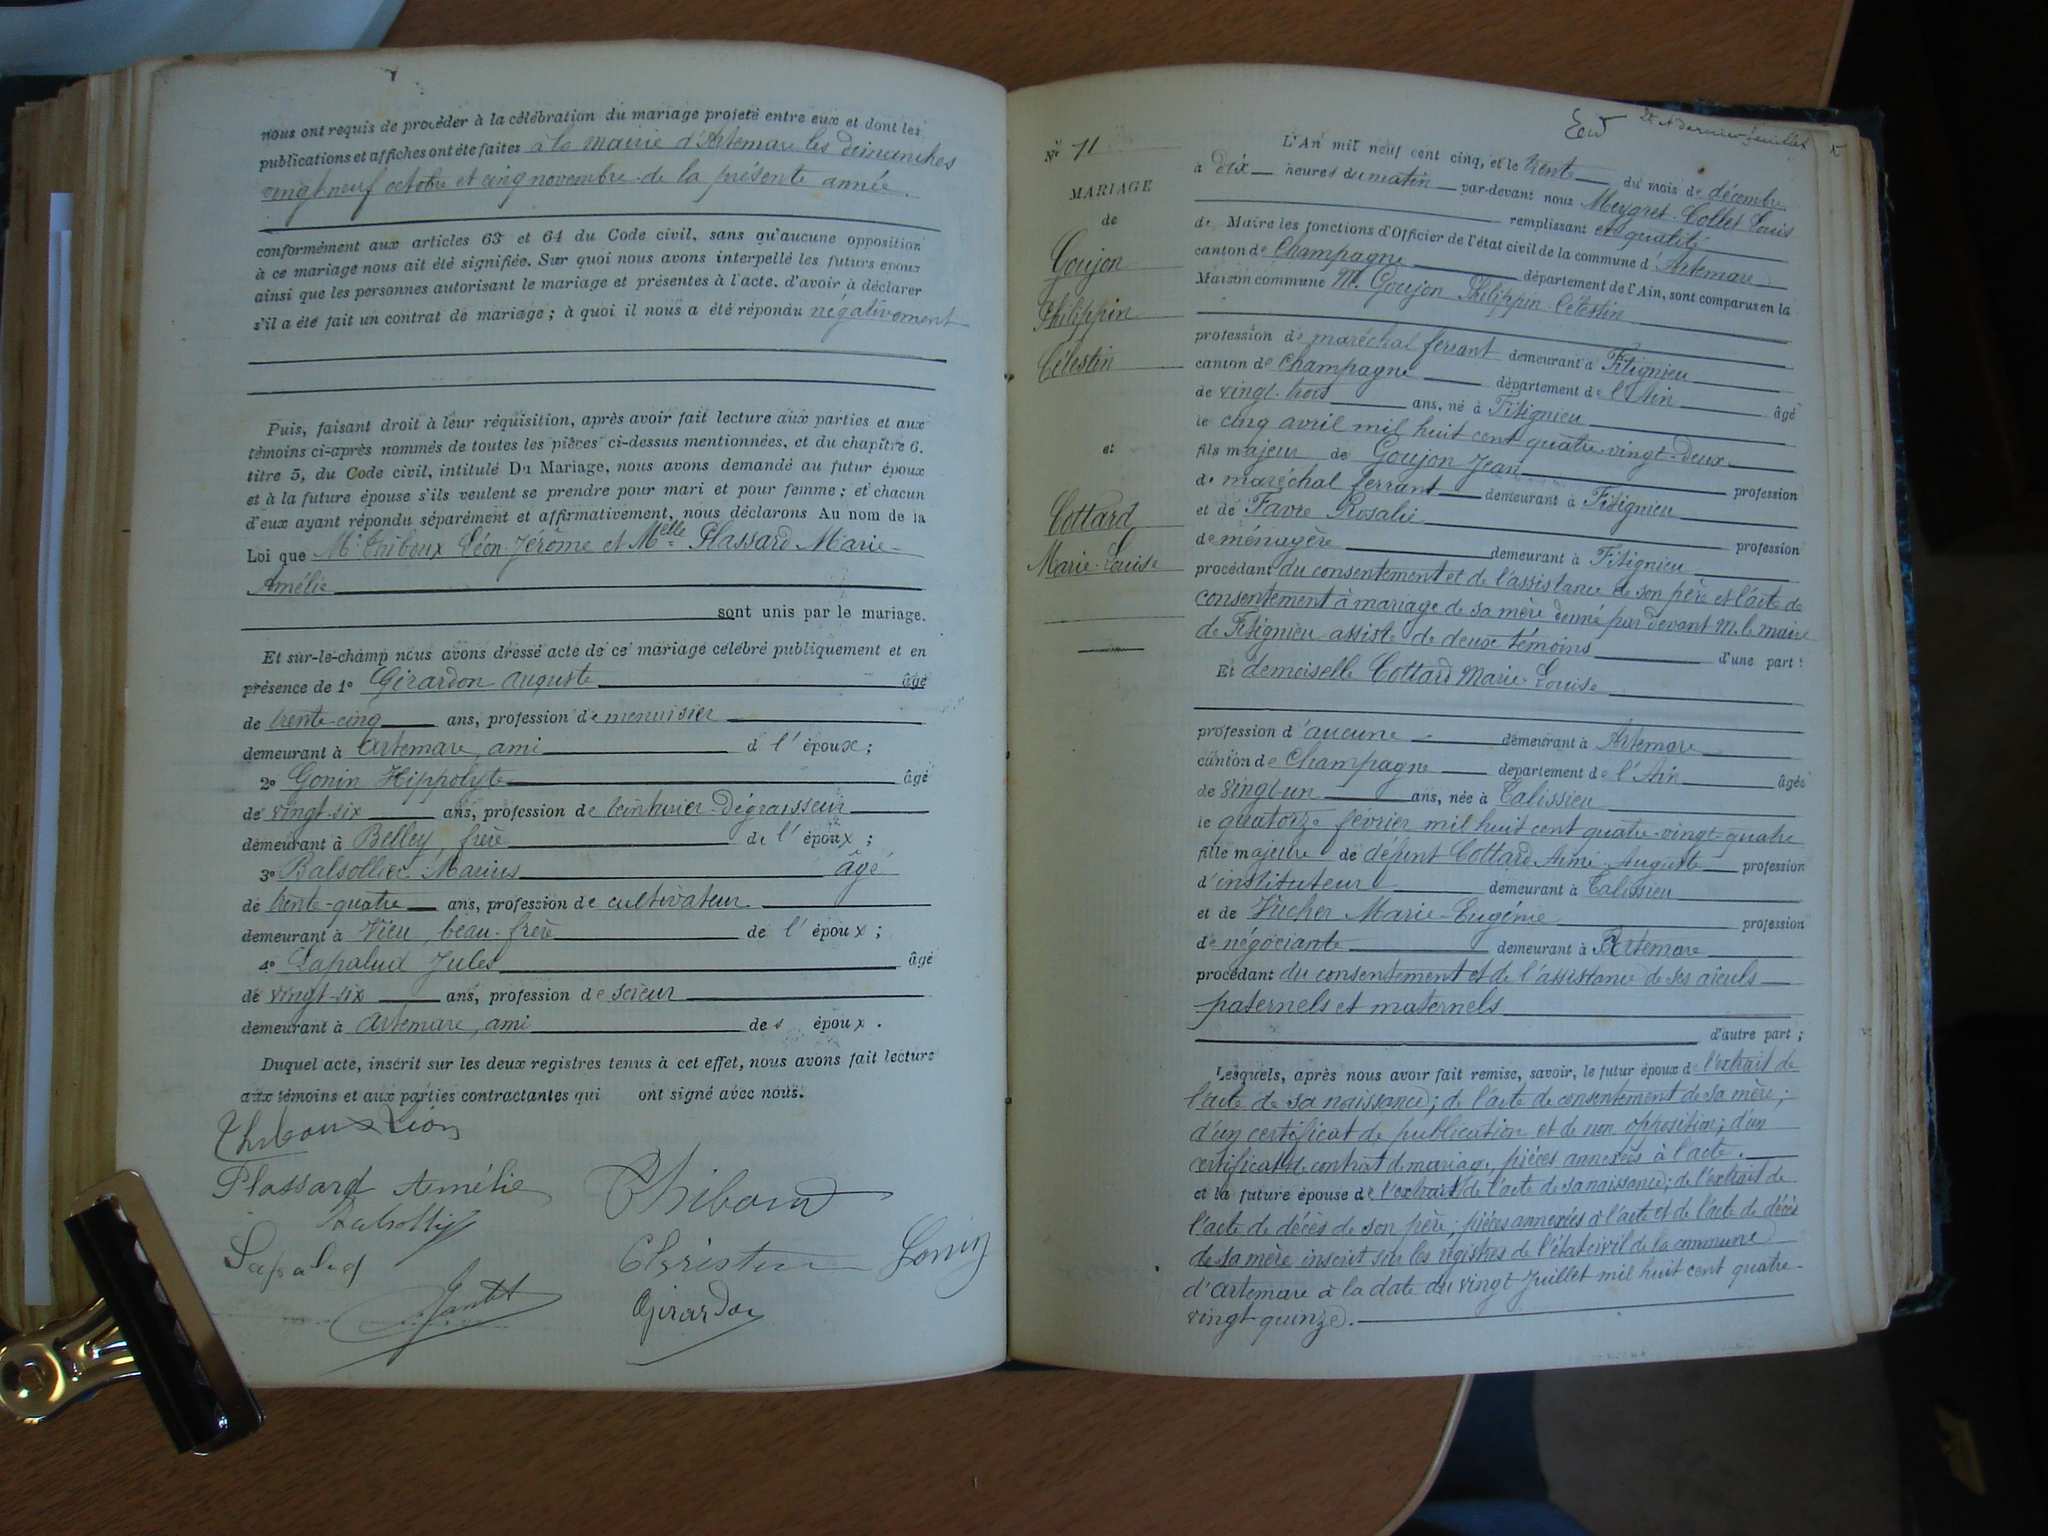 nous ont requis de procéder à la célébration du mariage projeté entre eux et dont les
publications et affiches ont été faites à la mairie d'Artemare les dimanches
vingt neuf octobre et cinq novembre de la présente année.
conformément aux articles 63 et 64 du Code civil, sans qu'aucune opposition
à ce mariage nous ait été signifiée. Sur quoi nous avons interpellé les futurs époux
ainsi que les personnes autorisant le mariage et présentes à l'acte. d'avoir à déclarer
s'il a été fait un contrat de mariage ; à quoi il nous a été répondu négativement
Puis, faisant droit à leur réquisition, après avoir fait lecture aux parties et aux
témoins ci-après nommés de toutes les pièces ci-dessus mentionnées, et du chapitre 6.
titre 5, du Code civil, intitulé Du Mariage, nous avons demandé au futur époux
et à la future épouse s'ils veulent se prendre pour mari et pour femme ; et chacun
d'eux ayant répondu séparément et affirmativement, nous déclarons Au nom de la
Loi que Mr Thiboux Léon Jérôme et Melle Plassard Marie-
Amélie
sont unis par le mariage.
Et sur-le-champ nous avons dressé acte de ce mariage célébré publiquement et en
présence de 1° Girardon Auguste âgé
de trente-cinq ans, profession de menuisier
demeurant à Artemare, ami d l' époux ;
2° Gonin Hippolyte âgé
de vingt-six ans, profession de teinturier-dégraisseur
demeurant à Belley, frère de l' époux ;
3° Balsollier Marius âgé
de trente-quatre ans, profession de cultivateur
demeurant à Vieu, beau-frère de l' époux ;
4° Lapalud Jules âgé
de vingt-six ans, profession de scieur
demeurant à Artemare, ami des époux.
Duquel acte, inscrit sur les deux registres tenus à cet effet, nous avons fait lecture
aux témoins et aux parties contractantes qui ont signé avec nous.
Thiboux Léon
Plassard Amélie Thiboux
Lapalud Christin Gonin
Jantet Girardon
N° 71
MARIAGE
de
Goujon
Philippin
Célestin
et
Cottard
Marie-Louise
L'An mil neuf cent cinq, et le trente du mois de décembre
à dix heures du matin par-devant nous Meygret-Collet Louis
remplissant en qualité
de Maire les fonctions d'Officier de l'état civil de la commune d'Artemare
canton de Champagne département de l'Ain, sont comparus en la
Maison commune M. Goujon Philippin Célestin
profession de maréchal ferrant demeurant à Fitignieu
canton de Champagne département de l'Ain âgé
de vingt-trois ans, né à Fitignieu
le cinq avril mil huit cent quatre-vingt-deux
fils majeur de Goujon Jean profession
de maréchal ferrant demeurant à Fitignieu
et de Favre Rosalie profession
de ménagère demeurant à Fitignieu
procédant du consentement et de l'assistance de son père et l'acte de
consentement à mariage de sa mère donné par devant M. le maire
de Fitignieu assisté de deux témoins d'une part :
Et demoiselle Cottard Marie-Louise
profession d'aucune demeurant à Artemare
canton de Champagne département de l'Ain âgée
de vingt-un ans, née à Talissieu
le quatorze février mil huit cent quatre-vingt-quatre
fille majeure de défunt Cottard Aimé Auguste profession
d'instituteur demeurant à Talissieu
et de Vucher Marie-Eugénie profession
de négociante demeurant à Artemare
procédant du consentement et de l'assistance de ses aïeuls
paternels et maternels
d'autre part ;
Lesquels, après nous avoir fait remise, savoir, le futur époux de l'extrait de
l'acte de sa naissance ; de l'acte de consentement de sa mère ;
d'un certificat de publication et de non opposition ; d'un
certificat de contrat de mariage, pièces annexées à l'acte.
et la future épouse de l'extrait de l'acte de sa naissance ; de l'extrait de
l'acte de décès de son père ; pièces annexées à l'acte et de l'acte de décès
de sa mère inscrit sur les registres de l'état civil de la commune
d'Artemare à la date du vingt Juillet mil huit cent quatre-
vingt-quinze.